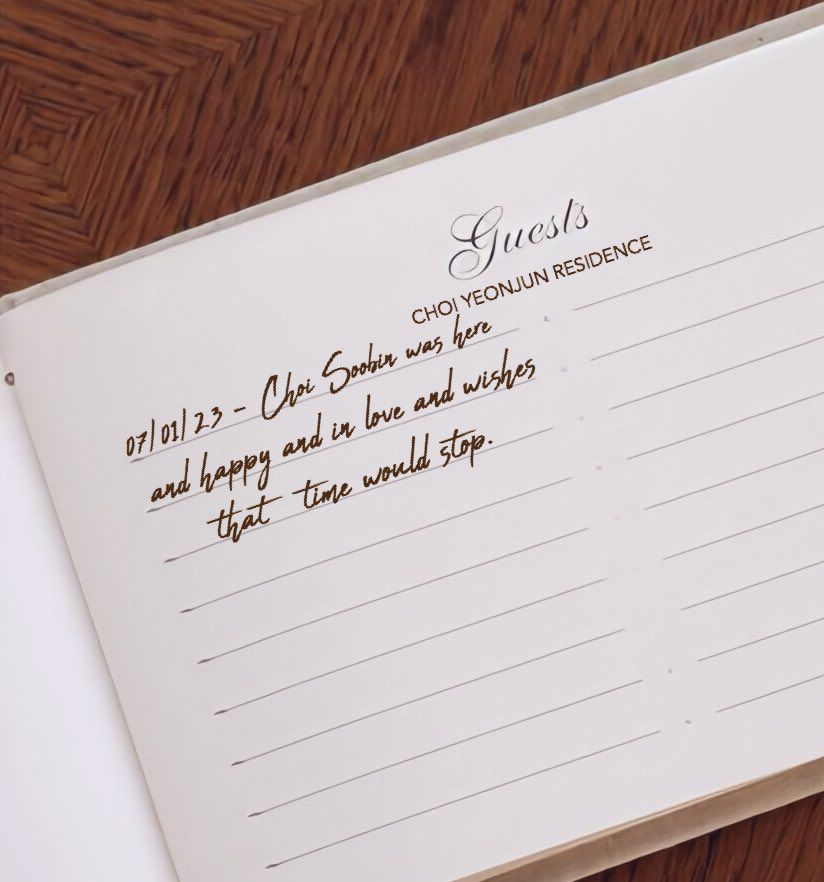 Guests
CHOI YEONJUN RESIDENCE
07/01/23 - Choi Soobin was here
and happy and in love and wishes
that time would stop.